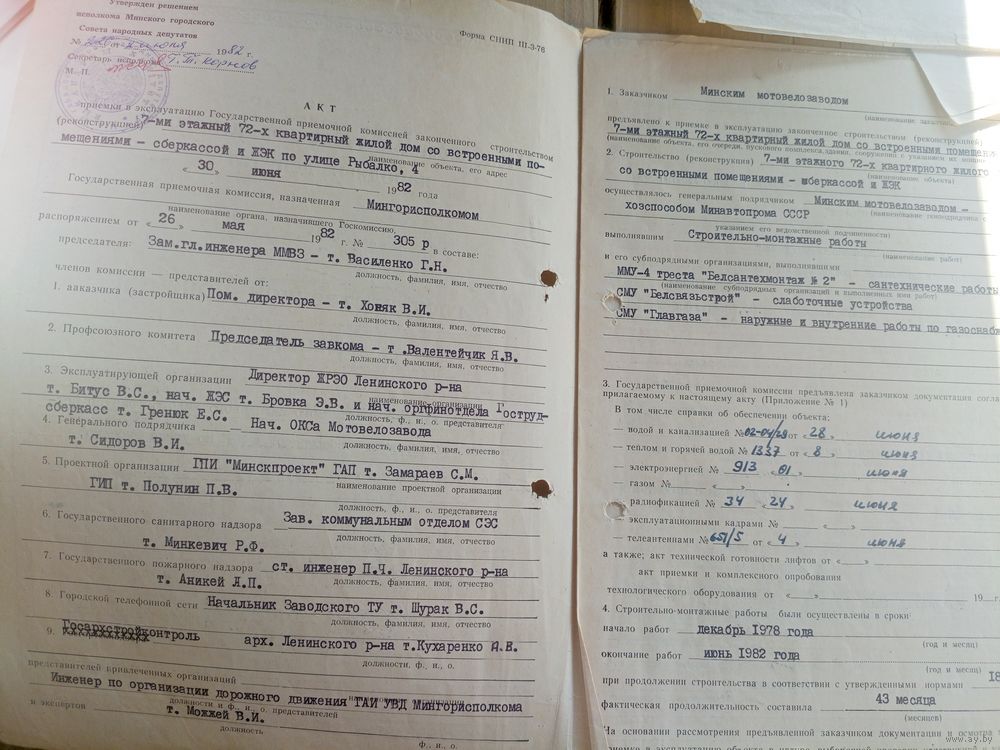 Утвержден решением
исполкома Минского городского
Совета народных депутатов
Форма СНИП III-3-76
1982 г.
Секретарь исполкома
М. П.
АКТ
приемки в эксплуатацию Государственной приемочной комиссией законченного строительством
(реконструкцией) 7-ми этажный 72-х квартирный жилой дом со встроенными по-
наименование объекта, его адрес
мещениями - сберкассой и ЖЭК по улице Рыбалко, 4
« 30 » июня 1982 года
Государственная приемочная комиссия, назначенная Мингорисполкомом
наименование органа, назначившего Госкомиссию,
распоряжением от « 26 » мая 1982 г. № 305 р в составе:
председателя: Зам.гл.инженера ММВЗ - т. Василенко Г.Н.
должность, фамилия, имя, отчество
членов комиссии — представителей от:
1. заказчика (застройщика) Пом. директора - т. Хоняк В.И.
должность, фамилия, имя, отчество
2. Профсоюзного комитета Председатель завкома - т .Валентейчик Я.В.
должность, фамилия, имя, отчество
3. Эксплуатирующей организации Директор ЖРЭО Ленинского р-на
наименование организации
т. Битус В.С., нач. ЖЭС т. Бровка Э.В. и нач. оргфинотдела Гоструд-
должность, ф., и., о. представителя
сберкасс т. Гренюк Е.С.
4. Генерального подрядчика Нач. ОКСа Мотовелозавода
т. Сидоров В.И.
должность, фамилия, имя, отчество
5. Проектной организации ГПИ "Минскпроект" ГАП т. Замараев С.М.
наименование проектной организации
ГИП т. Полунин П.В.
должность, ф., и., о. представителя
6. Государственного санитарного надзора Зав. коммунальным отделом СЭС
должность, фамилия, имя, отчество
т. Минкевич Р.Ф.
7. Государственного пожарного надзора ст. инженер П.Ч. Ленинского р-на
т. Аникей Л.П.
должность, фамилия, имя, отчество
8. Городской телефонной сети Начальник Заводского ТУ т. Шурак В.С.
должность, фамилия, имя, отчество
9. Госархстройконтроль арх. Ленинского р-на т.Кухаренко А.Е.
должности, ф., и., о.
представителей привлеченных организаций
Инженер по организации дорожного движения ГАИ УВД Мингорисполкома
должности и ф., и., о. представителей
и экспертов т. Можжей В.И.
должность
ф., и., о.
1. Заказчиком Минским мотовелозаводом
(наименование
предъявлено к приемке в эксплуатацию законченное строительством (реконструкцией)
7-ми этажный 72-х квартирный жилой дом со встроенными помещен
(наименование объекта, его очереди, пускового комплекса, здания, сооружения с указанием их
2. Строительство (реконструкция) 7-ми этажного 72-х квартирного жилого
(наименование объекта)
со встроенными помещениями - сберкассой и ЖЭК
осуществлялось генеральным подрядчиком Минским мотовелозаводом -
(наименование
хозспособом Минавтопрома СССР
указанием его ведомственной подчиненности)
выполнившим Строительно-монтажные работы
(наименование работ)
и его субподрядными организациями, выполнявшими
ММУ-4 треста "Белсантехмонтаж № 2" - сантехнические работы
(наименование субподрядных организаций и выполненных ими работ)
СМУ "Белсвязьстрой" - слаботочные устройства
СМУ "Главгаза" - наружные и внутренние работы по газоснаб
3. Государственной приемочной комиссии предъявлена заказчиком документация согла
прилагаемому к настоящему акту (Приложение № 1)
В том числе справки об обеспечении объекта:
— водой и канализацией № 02-04/29 от « 28 » июня
— теплом и горячей водой № 1337 от « 8 » июня
— электроэнергией № 913 « 01 » июня
— газом № « »
— радиофикацией № 34 « 24 » июня
— эксплуатационными кадрами № « »
— телеантеннами № 651/5 от « 4 » июня
а также; акт технической готовности лифтов от « »
акт приемки и комплексного опробования
технологического оборудования от « » 19 г.
4. Строительно-монтажные работы были осуществлены в сроки:
начало работ декабрь 1978 года
(год и месяц)
окончание работ июнь 1982 года
(год и месяц)
при продолжении строительства в соответствии с утвержденными нормами 18
фактическая продолжительность составила 43 месяца
(месяцев)
На основании рассмотрения предъявленной заказчиком документации и осмотра
www.ay.by